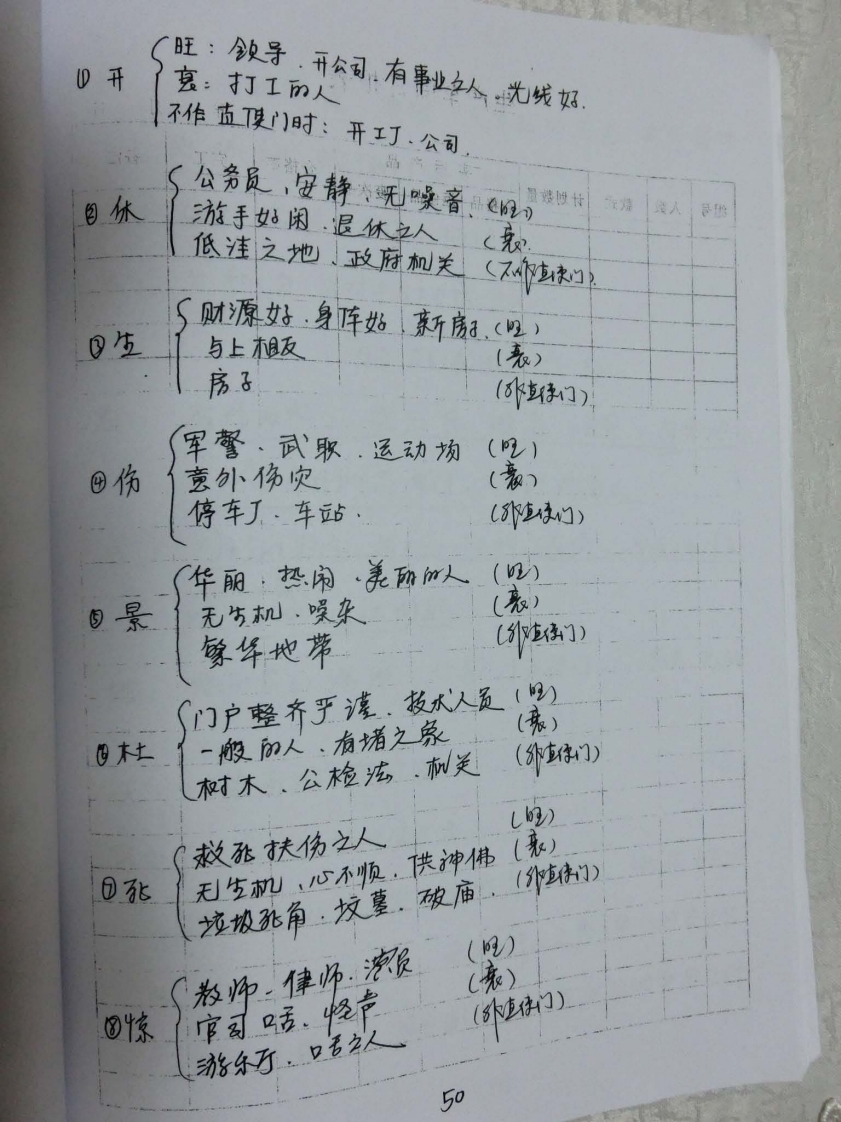 ① 开 旺：领导、开公司、有事业之人、光线好.
衰：打工的人
不作直使门时：开工厂、公司.
② 休 公务员、安静、无噪音.（旺）
游手好闲、退休之人（衰）
低洼之地、政府机关（不作直使门）
③ 生 财源好、身体好、新房子.（旺）
与上相反（衰）
房子（非直使门）
④ 伤 军警、武职、运动场（旺）
意外伤灾（衰）
停车厂、车站.（非直使门）
⑤ 景 华丽、热闹、美丽的人（旺）
无生机、噪杂（衰）
繁华地带（非直使门）
⑥ 杜 门户整齐严谨、技术人员（旺）
一般的人、有堵之象（衰）
树木、公检法、机关（非直使门）
⑦ 死 救死扶伤之人（旺）
无生机、心不顺、供神佛（衰）
垃圾死角、坟墓、破庙.（非直使门）
⑧ 惊 教师、律师、演员（旺）
官司口舌、怪声（衰）
游乐厅、口舌之人（非直使门）
编号 人员 款式 计划数量
50